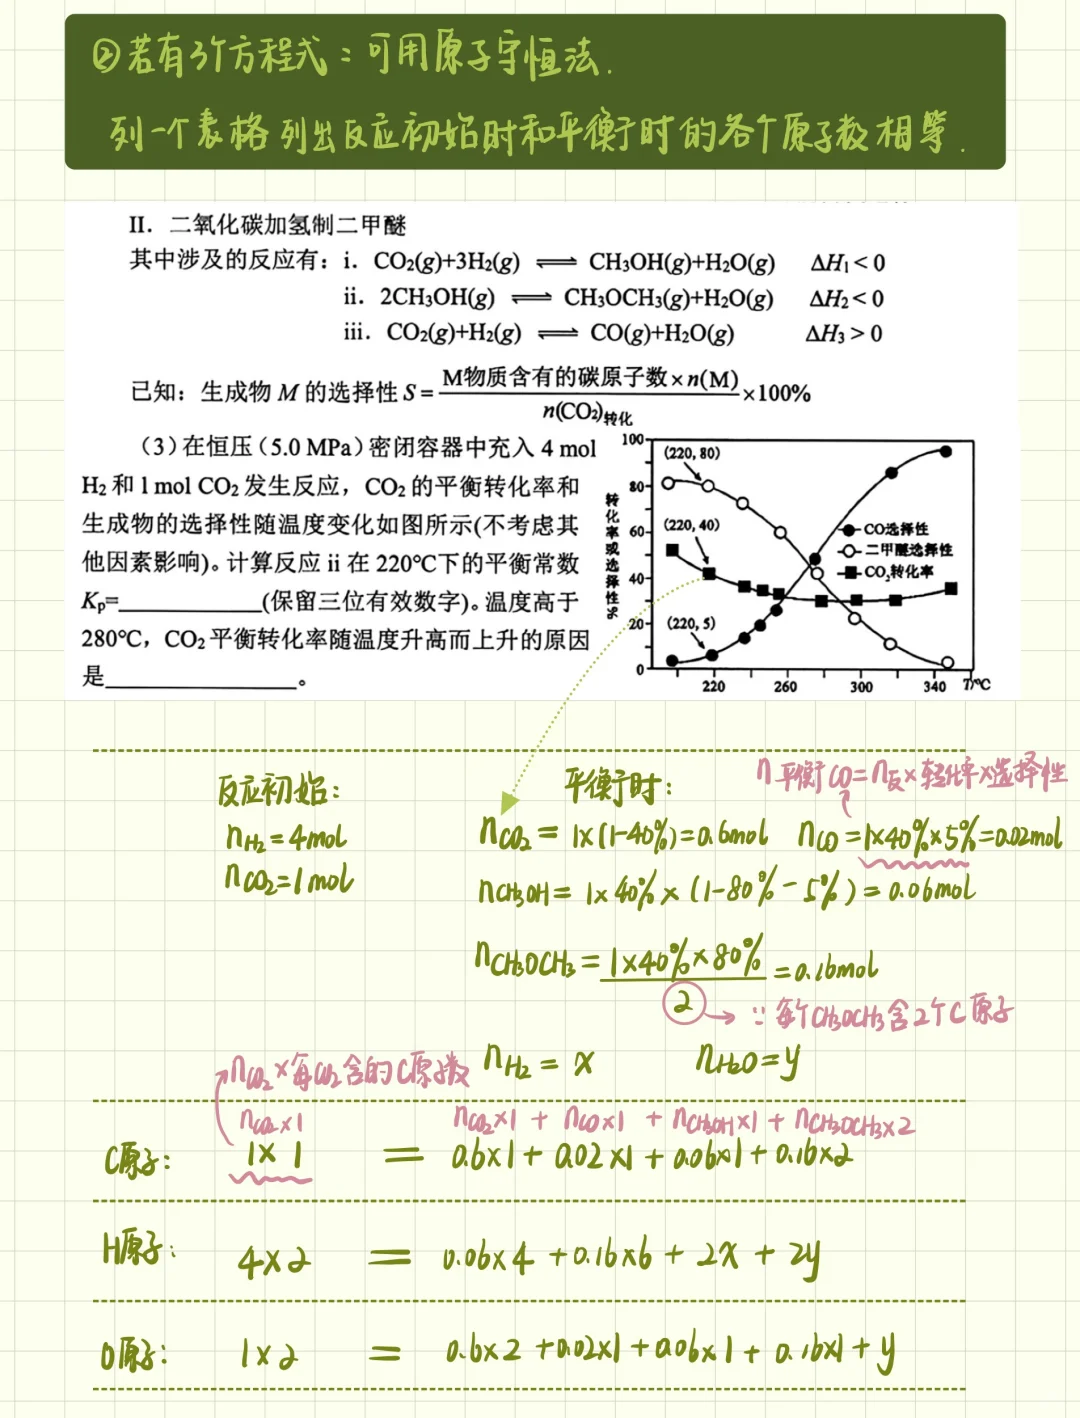 ②若有3个方程式：可用原子守恒法.
列一个表格 列出反应初始时和平衡时的各个原子数相等.
II. 二氧化碳加氢制二甲醚
其中涉及的反应有：i. CO₂(g)+3H₂(g) ⇌ CH₃OH(g)+H₂O(g) ΔH₁<0
ii. 2CH₃OH(g) ⇌ CH₃OCH₃(g)+H₂O(g) ΔH₂<0
iii. CO₂(g)+H₂(g) ⇌ CO(g)+H₂O(g) ΔH₃>0
已知：生成物 M 的选择性 S = M物质含有的碳原子数×n(M) / n(CO₂)转化 ×100%
（3）在恒压（5.0 MPa）密闭容器中充入 4 mol
H₂ 和 1 mol CO₂ 发生反应，CO₂ 的平衡转化率和
生成物的选择性随温度变化如图所示(不考虑其
他因素影响)。计算反应 ii 在 220℃下的平衡常数
Kp=____________(保留三位有效数字)。温度高于
280℃，CO₂ 平衡转化率随温度升高而上升的原因
是________________。
转化率或选择性%
100
80
60
40
20
0
(220, 80)
(220, 40)
(220, 5)
CO选择性
二甲醚选择性
CO₂转化率
220 260 300 340 T/℃
反应初始：
nH₂=4mol
nCO₂=1mol
平衡时：
n平衡CO=n反×转化率×选择性
nCO₂ = 1×(1-40%)=0.6mol nCO=1×40%×5%=0.02mol
nCH₃OH = 1×40%×(1-80%-5%)=0.06mol
nCH₃OCH₃ = 1×40%×80% / 2 = 0.16mol
→ ∵每个CH₃OCH₃含2个C原子
nH₂ = x nH₂O=y
nCO₂×每CO₂含的C原子数
nCO₂×1 nCO₂×1 + nCO×1 + nCH₃OH×1 + nCH₃OCH₃×2
C原子： 1×1 = 0.6×1+0.02×1+0.06×1+0.16×2
H原子： 4×2 = 0.06×4+0.16×6+2x+2y
O原子： 1×2 = 0.6×2+0.02×1+0.06×1+0.16×1+y